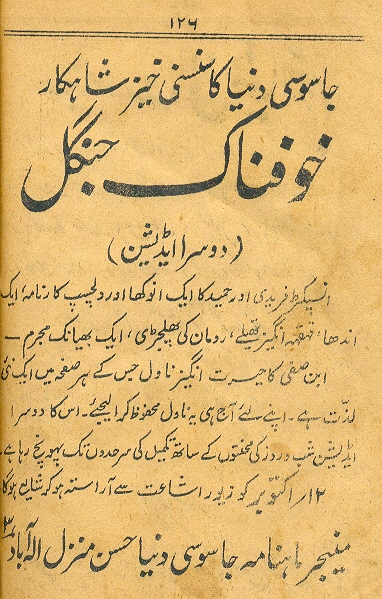 ۱۲۶
جاسوسی دنیا کا سنسنی خیز شاہکار
خوفناک جنگل
(دوسرا ایڈیشن)
انسپکٹر فریدی اور حمید کا ایک انوکھا اور دلچسپ کارنامہ، ایک
اندھا، قہقہہ انگیز جملے، رومان کی پھلجڑی، ایک بھیانک مجرم ۔
ابن صفی کا حیرت انگیز ناول جس کے ہر صفحہ میں ایک نئی
لذت ہے۔ اپنے لئے آج ہی یہ ناول محفوظ کرا لیجئے۔ اس کا دوسرا
ایڈیشن شب و روز کی محنتوں کے ساتھ تکمیل کی سرحدوں تک پہونچ رہا ہے۔
۱۲ اکتوبر کو زیور اشاعت سے آراستہ ہو کر شایع ہوگا
منیجر ماہنامہ جاسوسی دنیا حسن منزل الہ آباد ۳